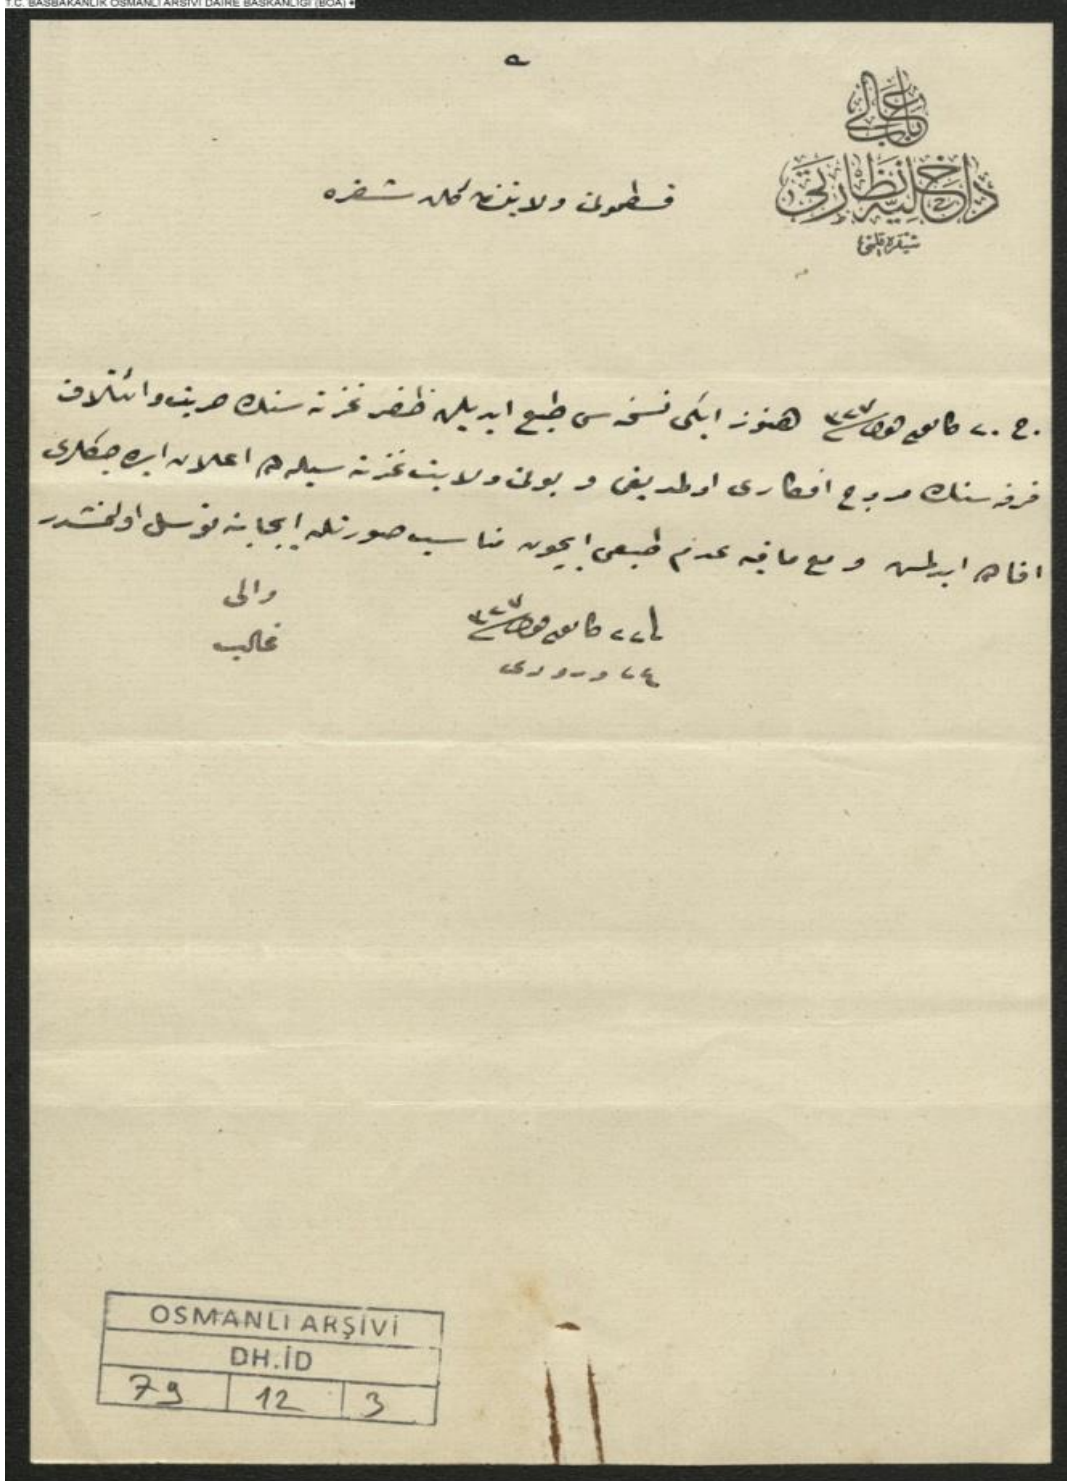 T.C. BAŞBAKANLIK OSMANLI ARŞİVİ DAİRE BAŞKANLIĞI (BOA)
باب عالی
داخلیه نظارتی
شیفره قلمی
قسطمونی ولایتندن کلن شفره
ج ٢٠ کانون اول سنه ٣٢٧ هنوز ایکی نسخه سی طبع ایدیلن ظفر غزته سنك حریت و ائتلاف
فرقه سنك مروج افکاری اولمدیغی و بونی ولایت غزته سیله ده اعلان ایده جکلری
افاده ایدلمش و مع مافیه عدم طبعی ایچون مناسب صورتله ایجابنه توسل اولنمشدر
فی ٢٢ کانون اول سنه ٣٢٧
٢٤ ورودی
والی
غالب
OSMANLI ARŞİVİ
DH.İD
79 12 3